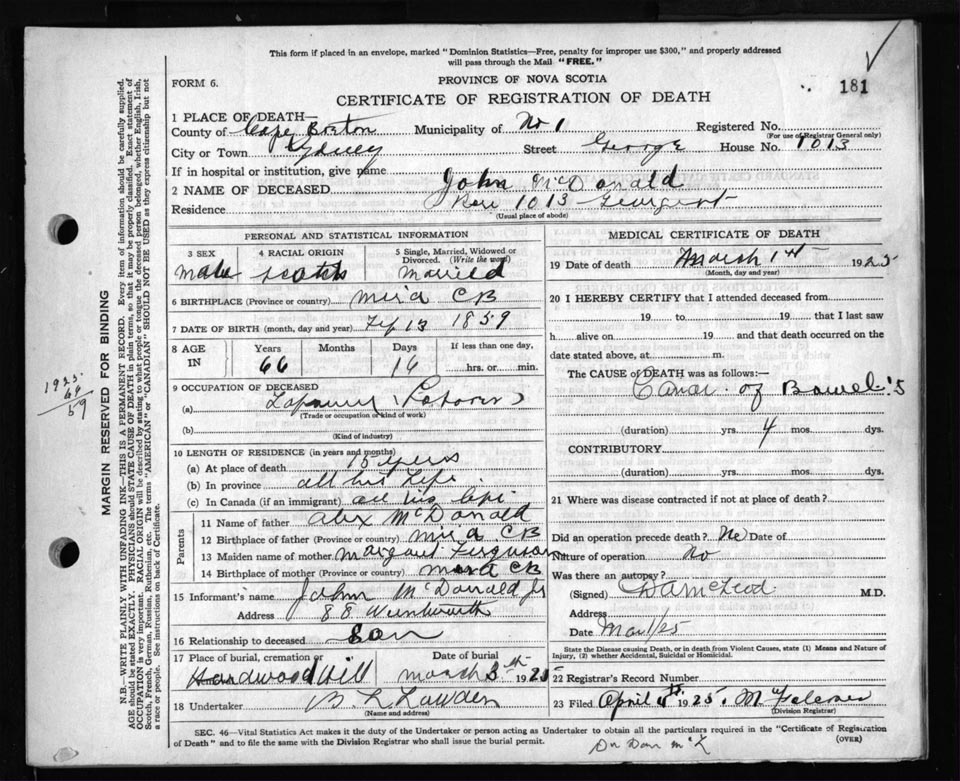 This form if placed in an envelope, marked "Dominion Statistics—Free, penalty for improper use $300," and properly addressed
will pass through the Mail "FREE."
FORM 6.
PROVINCE OF NOVA SCOTIA
181
CERTIFICATE OF REGISTRATION OF DEATH
1 PLACE OF DEATH—
County of Cape Breton Municipality of No 1 Registered No.
(For use of Registrar General only)
City or Town Sydney Street George House No. 1013
If in hospital or institution, give name
2 NAME OF DECEASED John McDonald
Residence 1013 George st
(Usual place of abode)
PERSONAL AND STATISTICAL INFORMATION
3 SEX 4 RACIAL ORIGIN 5 Single, Married, Widowed or Divorced. (Write the word)
Male Scotch Married
6 BIRTHPLACE (Province or country) Mira CB
7 DATE OF BIRTH (month, day and year) 13 1859
8 AGE IN Years Months Days If less than one day,
66 16 hrs. or min.
9 OCCUPATION OF DECEASED
(a) (Laborer)
(Trade or occupation or kind of work)
(b)
(Kind of industry)
10 LENGTH OF RESIDENCE (in years and months)
(a) At place of death 15 years
(b) In province all his life
(c) In Canada (if an immigrant) all his life
Parents
11 Name of father Alex McDonald
12 Birthplace of father (Province or country) Mira CB
13 Maiden name of mother Margaret Ferguson
14 Birthplace of mother (Province or country) Mira CB
15 Informant's name John McDonald Jr
Address 88 Wentworth
16 Relationship to deceased Son
17 Place of burial, cremation or Date of burial
Hardwood Hill March 3th 1925
18 Undertaker
(Name and address)
MEDICAL CERTIFICATE OF DEATH
19 Date of death March 1st 1925
(Month, day and year)
20 I HEREBY CERTIFY that I attended deceased from
19 to 19 that I last saw
h alive on 19 and that death occurred on the
date stated above, at m.
The CAUSE OF DEATH was as follows:—
Cancer of Bowels
(duration) yrs. 4 mos. dys.
CONTRIBUTORY
(duration) yrs. mos. dys.
21 Where was disease contracted if not at place of death?
Did an operation precede death? No Date of
Nature of operation No
Was there an autopsy?
(Signed) D A McLeod M.D.
Address
Date
State the Disease causing Death, or in death from Violent Causes, state (1) Means and Nature of
Injury, (2) whether Accidental, Suicidal or Homicidal.
22 Registrar's Record Number
23 Filed April 1925.
(Division Registrar)
SEC. 46—Vital Statistics Act makes it the duty of the Undertaker or person acting as Undertaker to obtain all the particulars required in the "Certificate of Registration
of Death" and to file the same with the Division Registrar who shall issue the burial permit.
(OVER)
1925
59
MARGIN RESERVED FOR BINDING
N.B.—WRITE PLAINLY WITH UNFADING INK—THIS IS A PERMANENT RECORD. Every item of information should be carefully supplied.
AGE should be stated EXACTLY. PHYSICIANS should STATE CAUSE OF DEATH in plain terms, so that it may be properly classified. Exact statement of
OCCUPATION is very important. RACIAL ORIGIN will be described by stating to what people or tongue the deceased person belonged, whether English, Irish,
Scotch, French, German, Russian, Ruthenian, etc. The terms "AMERICAN" or "CANADIAN" SHOULD NOT BE USED as they express citizenship but not
a race or people. See instructions on back of Certificate.